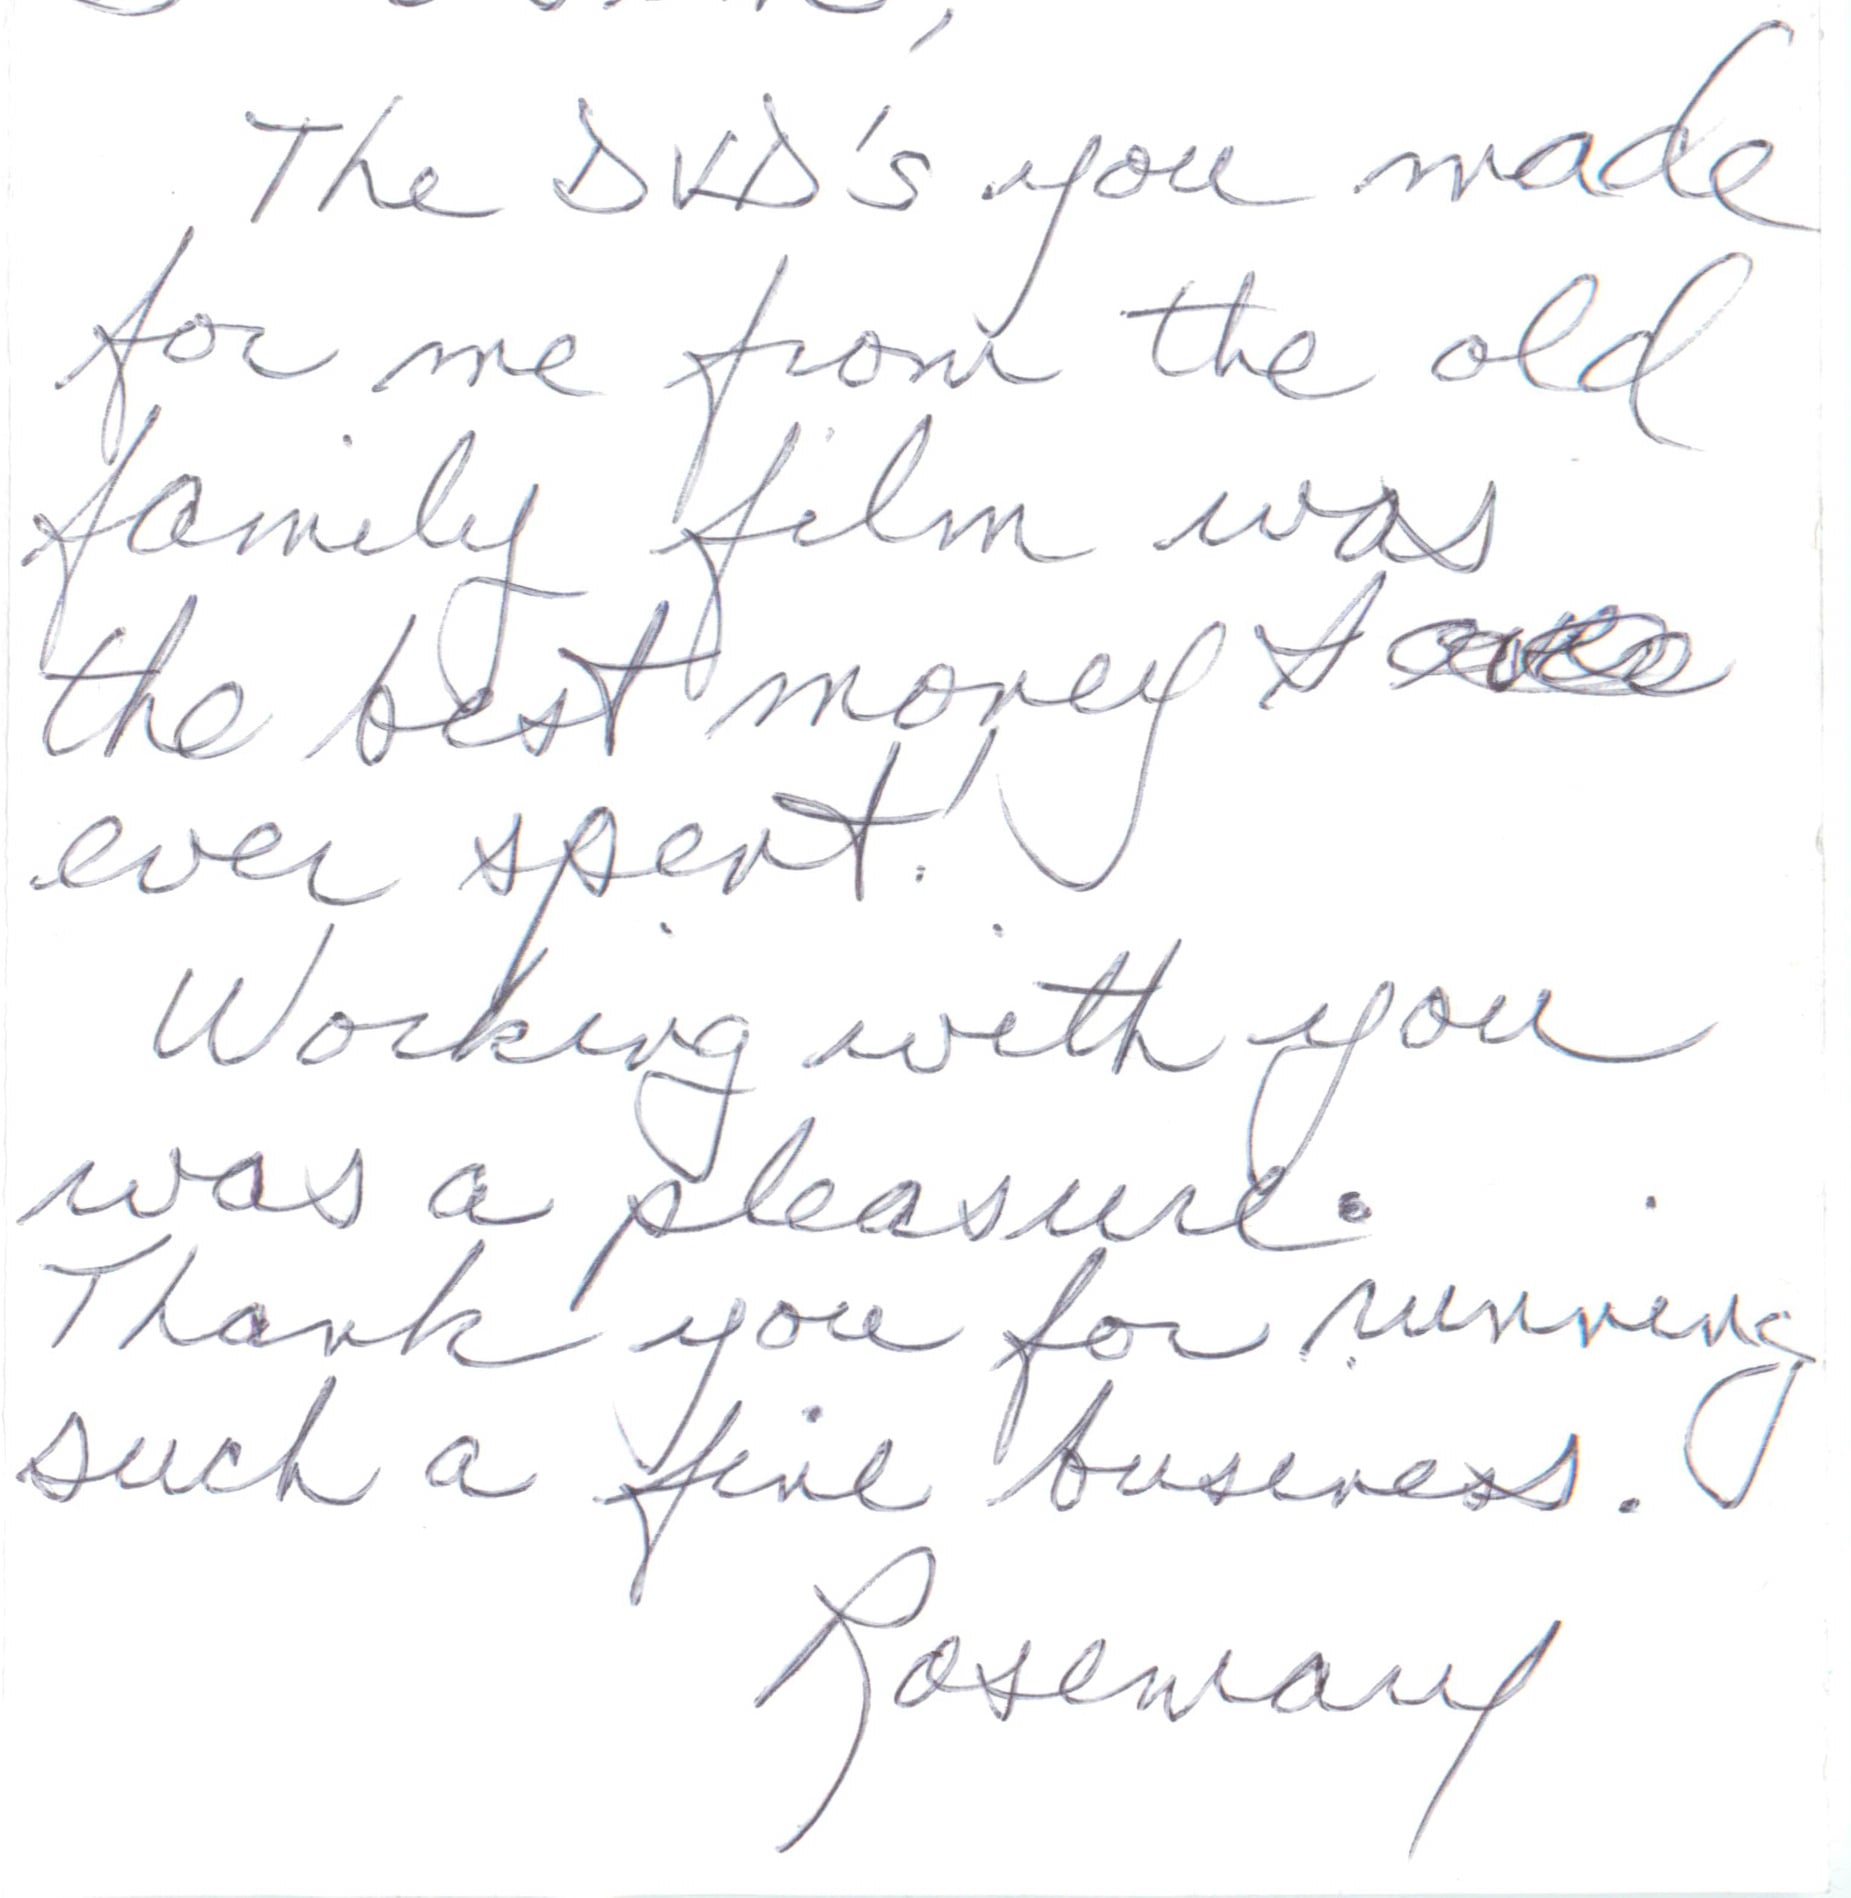 The DVD's you made
for me from the old
family film was
the best money I
ever spent!
Working with you
was a pleasure.
Thank you for running
such a fine business.
Rosemary